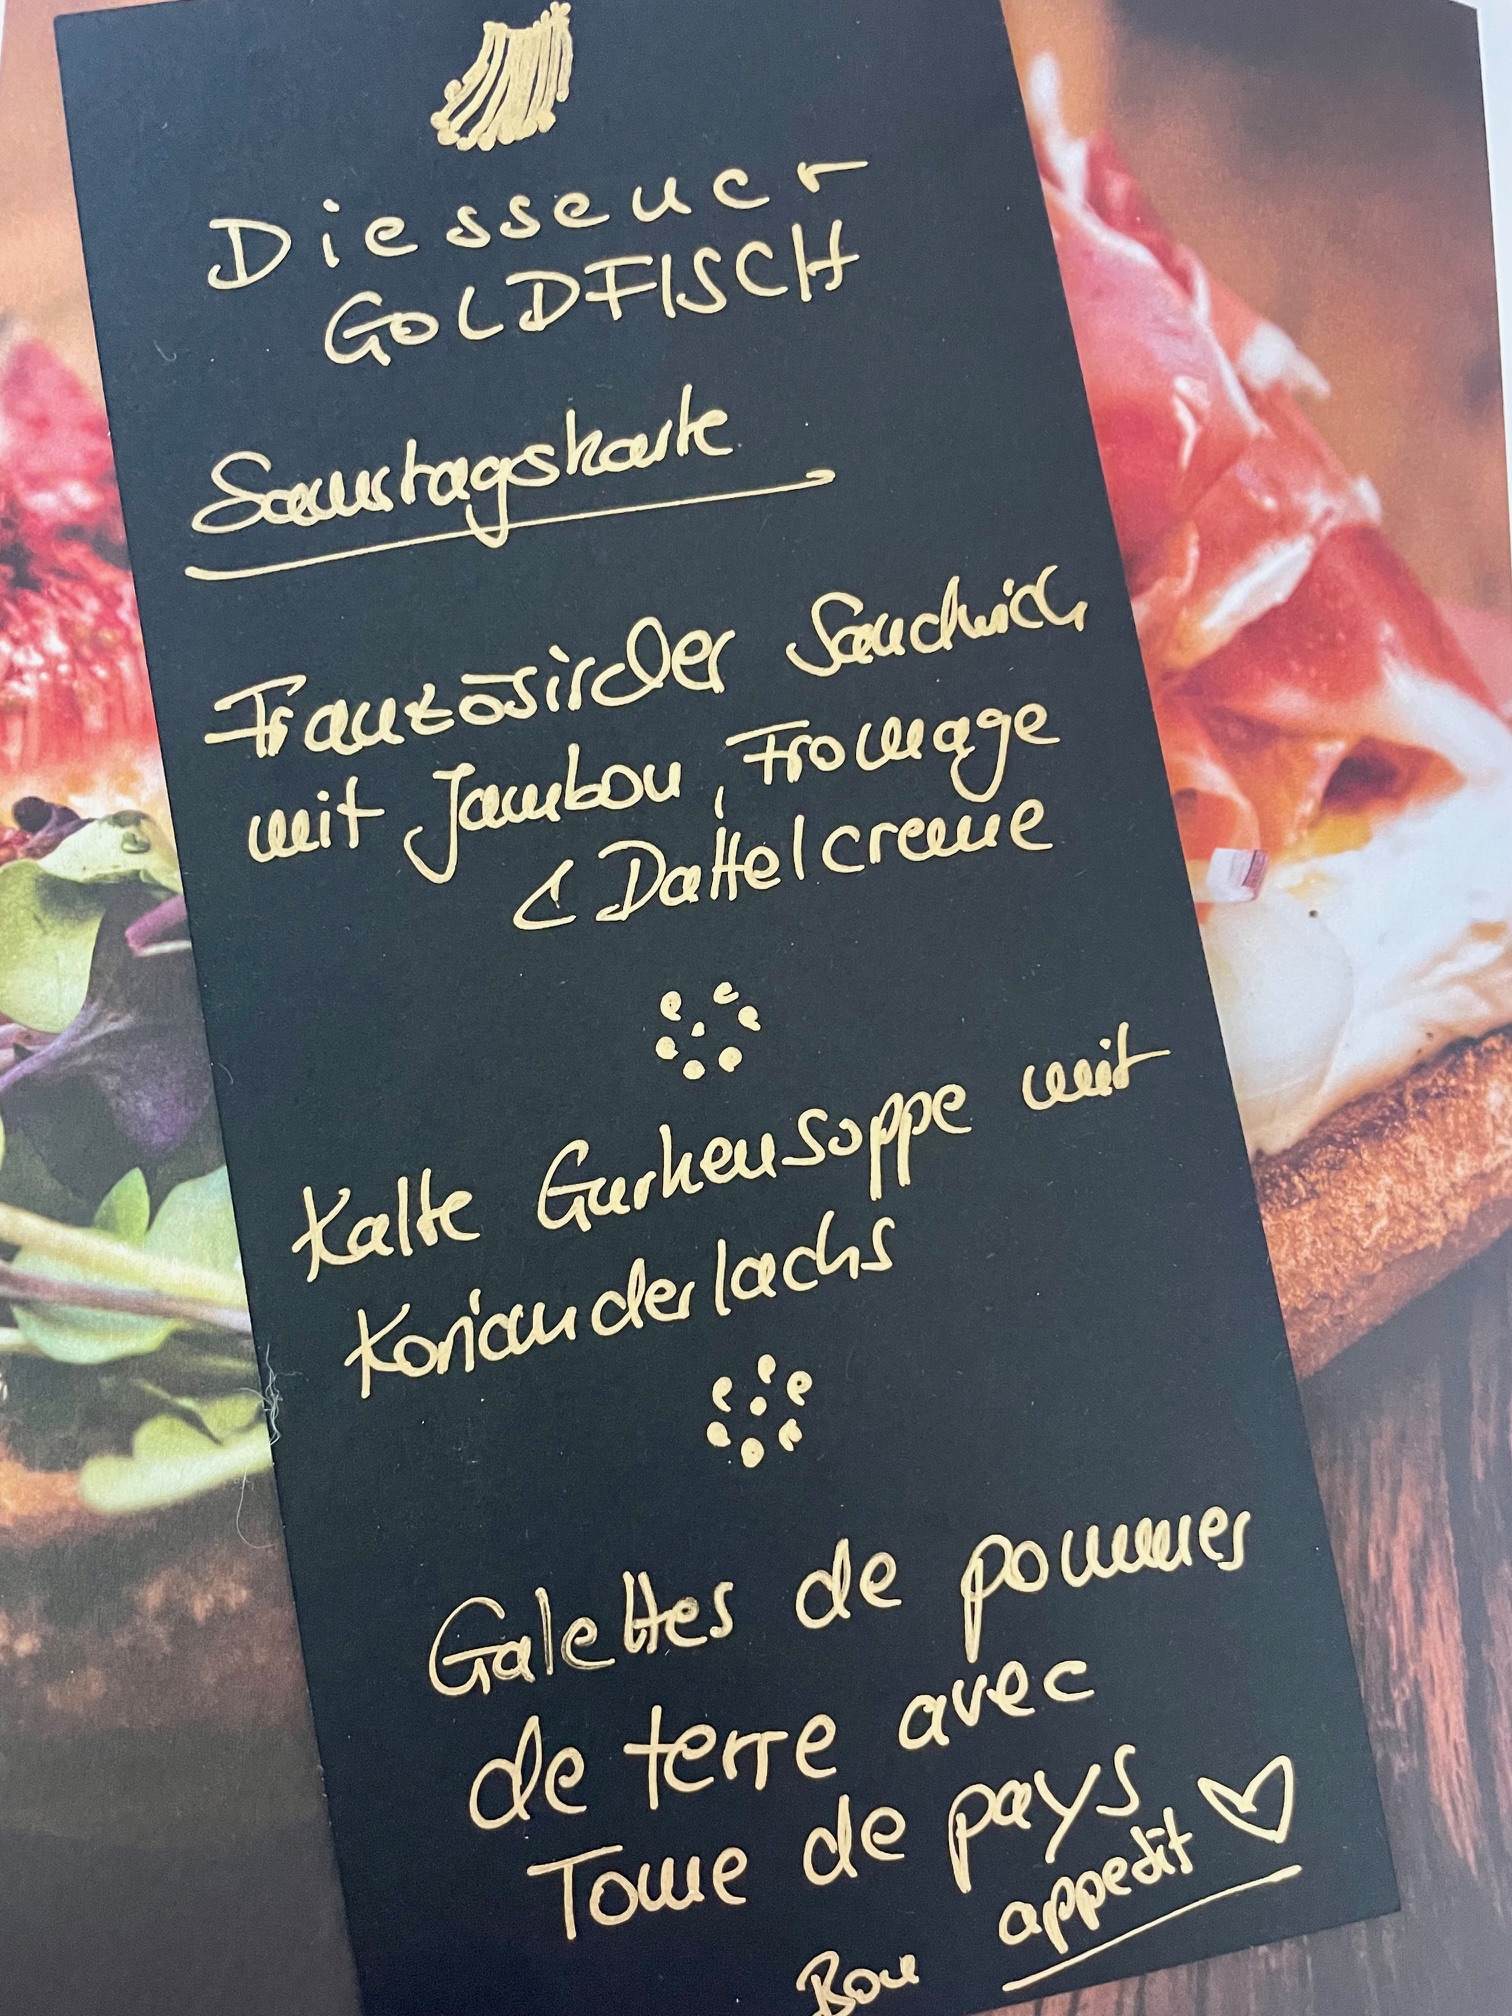 Diessener
GOLDFISCH
Samstagskarte
Französischer Sandwich
mit Jambon, Fromage
& Dattelcreme
Kalte Gurkensoppe mit
Korianderlachs
Galettes de pommes
de terre avec
Tome de pays
Bon appedit